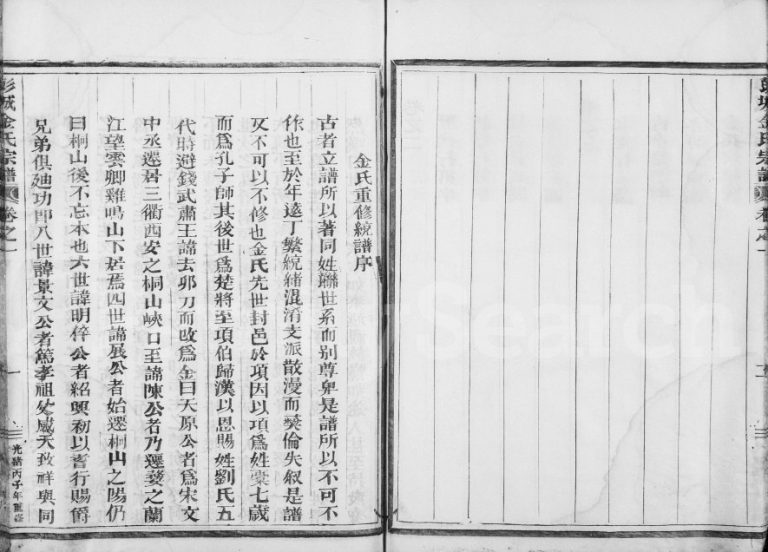 彭城金氏宗譜 卷之一
金氏重修統譜序
古者立譜所以著同姓聯世系而別尊卑是譜所以不可不
作也至於年遠丁繁統緒混淆支派散漫而彝倫失叙是譜
又不可以不修也金氏先世封邑於項因以項爲姓橐七歲
而爲孔子師其後世爲楚將至項伯歸漢以恩賜姓劉氏五
代時避錢武肅王諱去卯刀而改爲金曰天原公者爲宋文
中丞遷居三衢西安之桐山峽口至諱陳公者乃遷婺之蘭
江望雲卿雞鳴山下居焉四世諱展公者始遷桐山之陽仍
曰桐山後不忘本也六世諱明倅公者紹興初以耆行賜爵
兄弟俱廸功郎八世諱景文公者篤孝祖父感天致祥與同
一
光緒丙子年重修
彭城金氏宗譜 卷之一